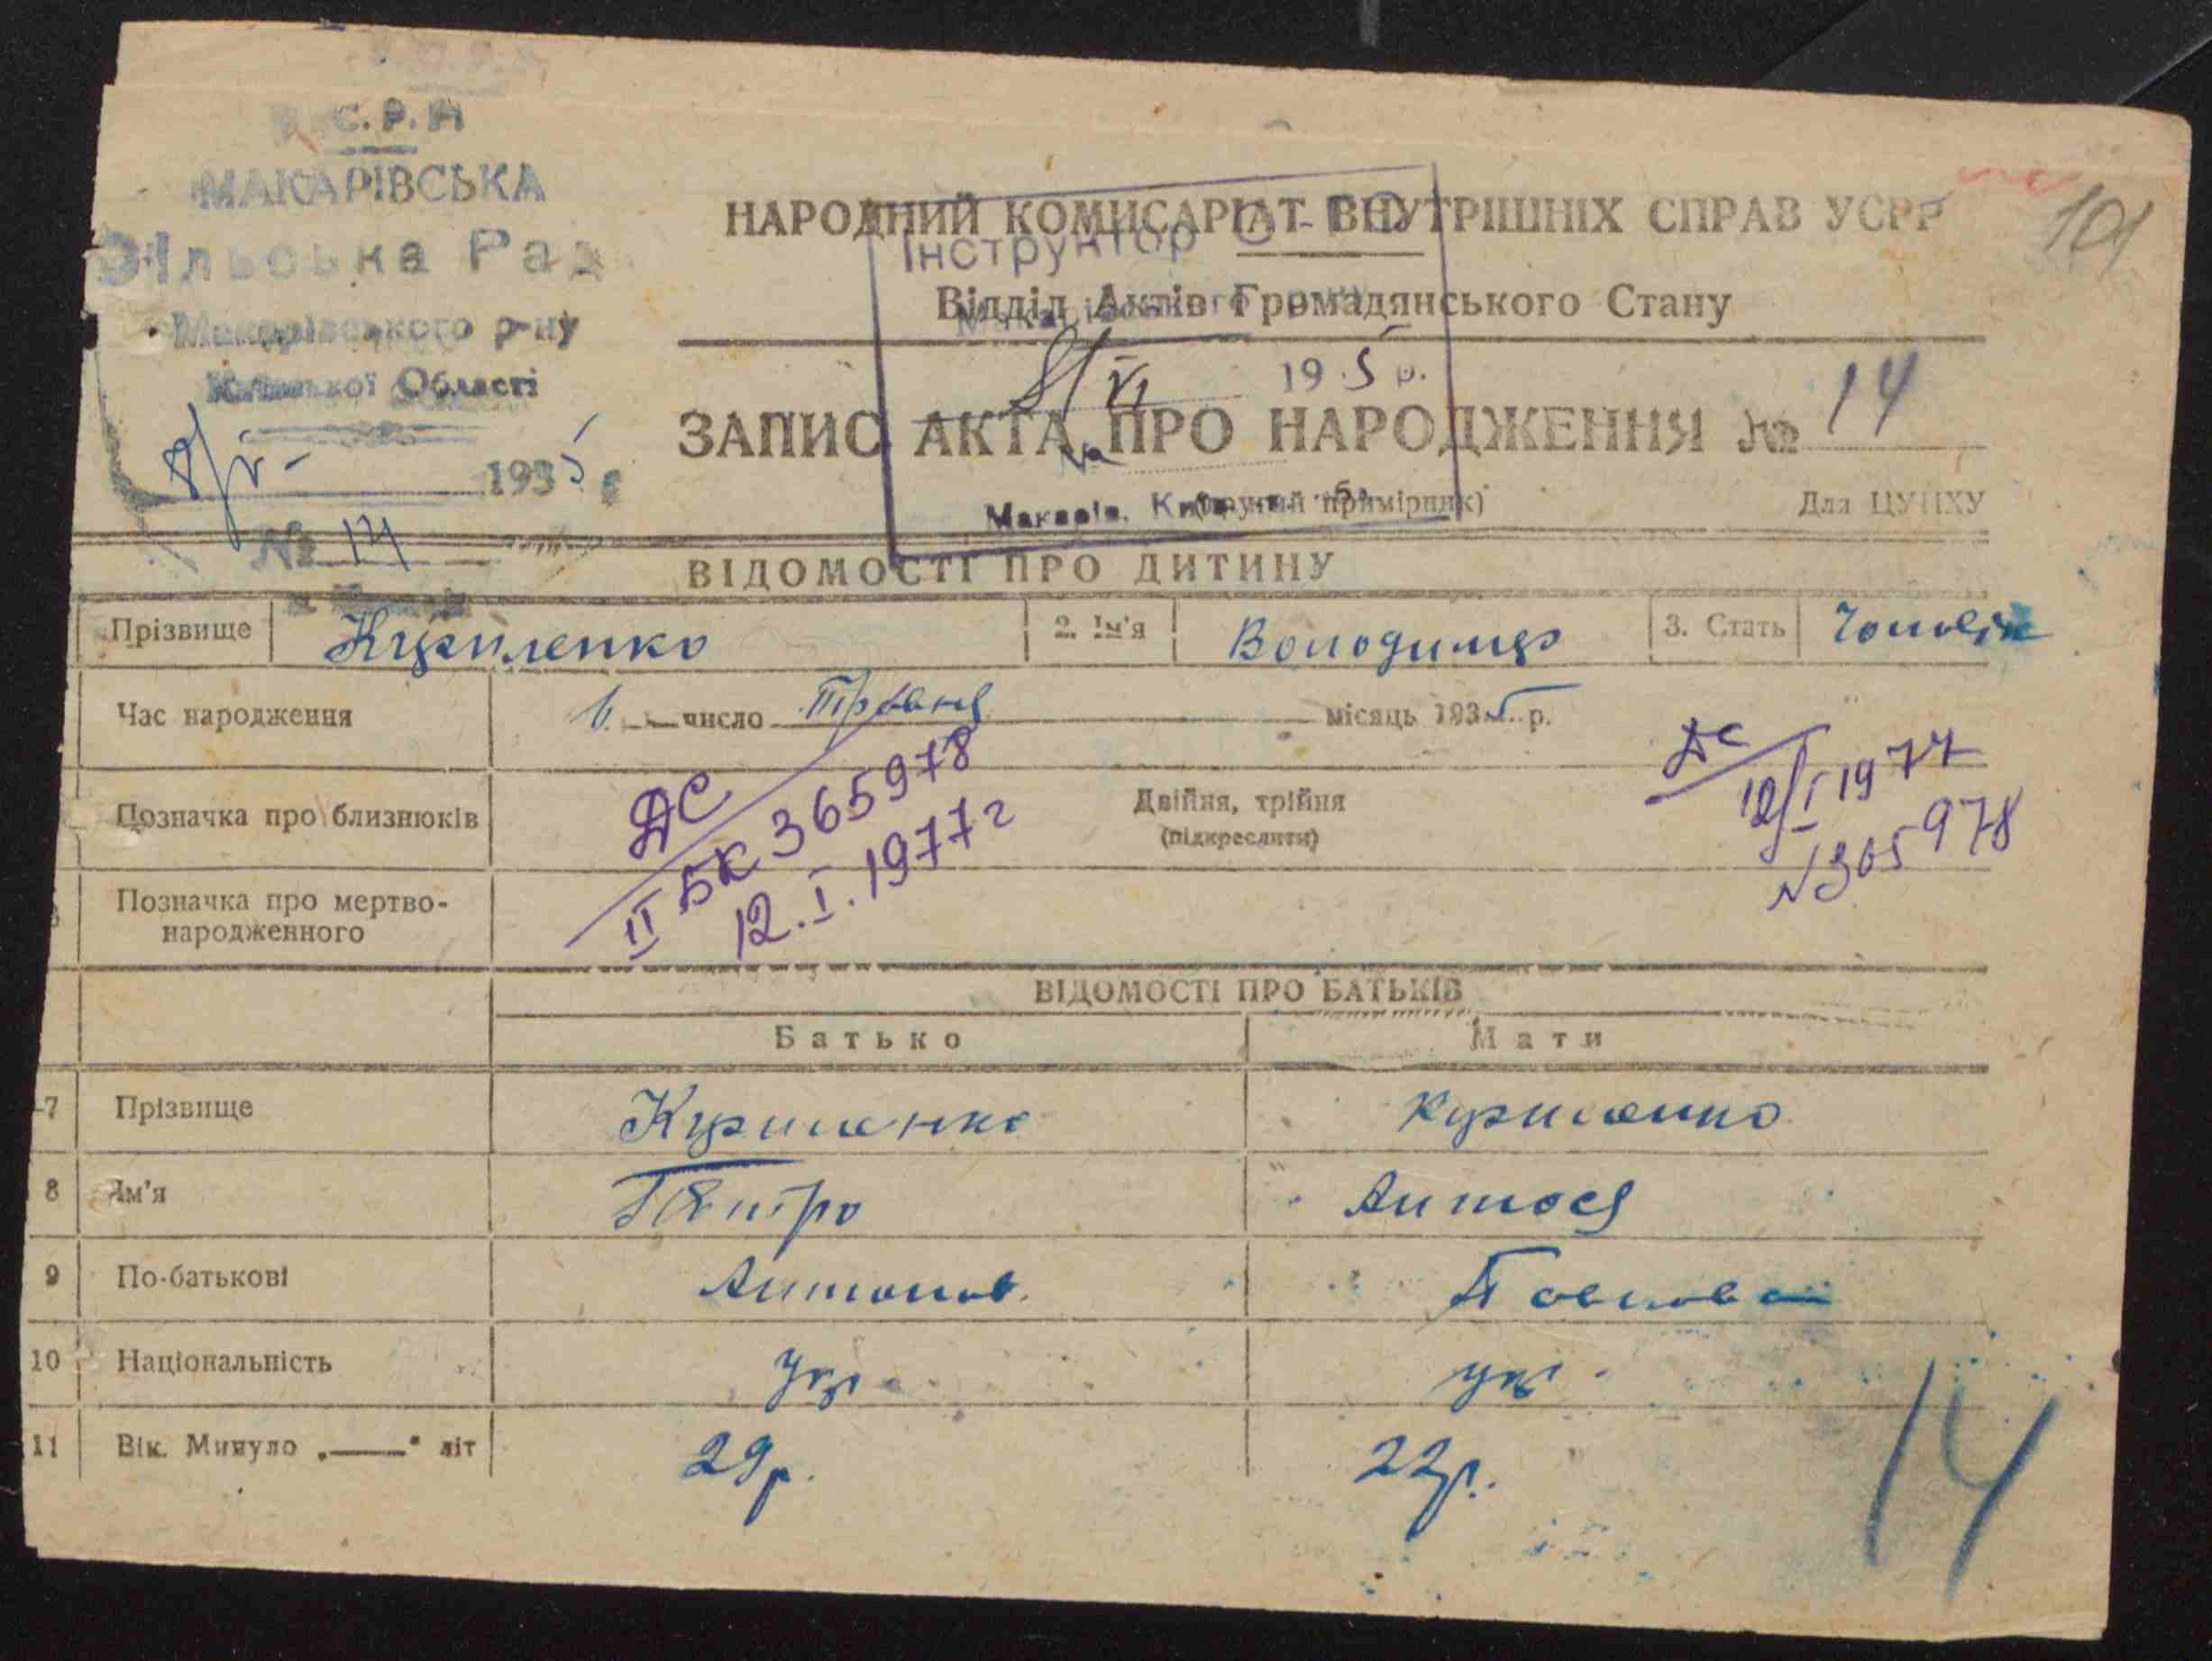 С. Р. Р.
МАКАРІВСЬКА
Сільська Рада
Макарівського р-ну
Київської Області
8/V - 1935 р
№ 14
101
НАРОДНИЙ КОМІСАРІАТ ВНУТРІШНІХ СПРАВ УСРР
Інструктор
Відділ Актів Громадянського Стану
Макарівського
VI 19 5 р.
ЗАПИС АКТА ПРО НАРОДЖЕННЯ № 14
№
Макарів,
(другий примірник)
Для ЦУНХУ
ВІДОМОСТІ ПРО ДИТИНУ
Прізвище Куриленко 2. Ім'я Володимер 3. Стать Чоловік
Час народження число Травня місяць 1935 р.
Позначка про близнюків Двійня, трійня
(підкреслити)
ДС
II БК 365978
12.I.1977 г
ДС
12/I 1977
№365978
Позначка про мертво-
народженного
ВІДОМОСТІ ПРО БАТЬКІВ
Батько Мати
7 Прізвище Куриленко Куриленко
8 Ім'я Петро Антося
9 По-батькові Антонов. Павлова
10 Національність Укр. укр.
11 Вік. Минуло „——" літ 29р. 22р.
14